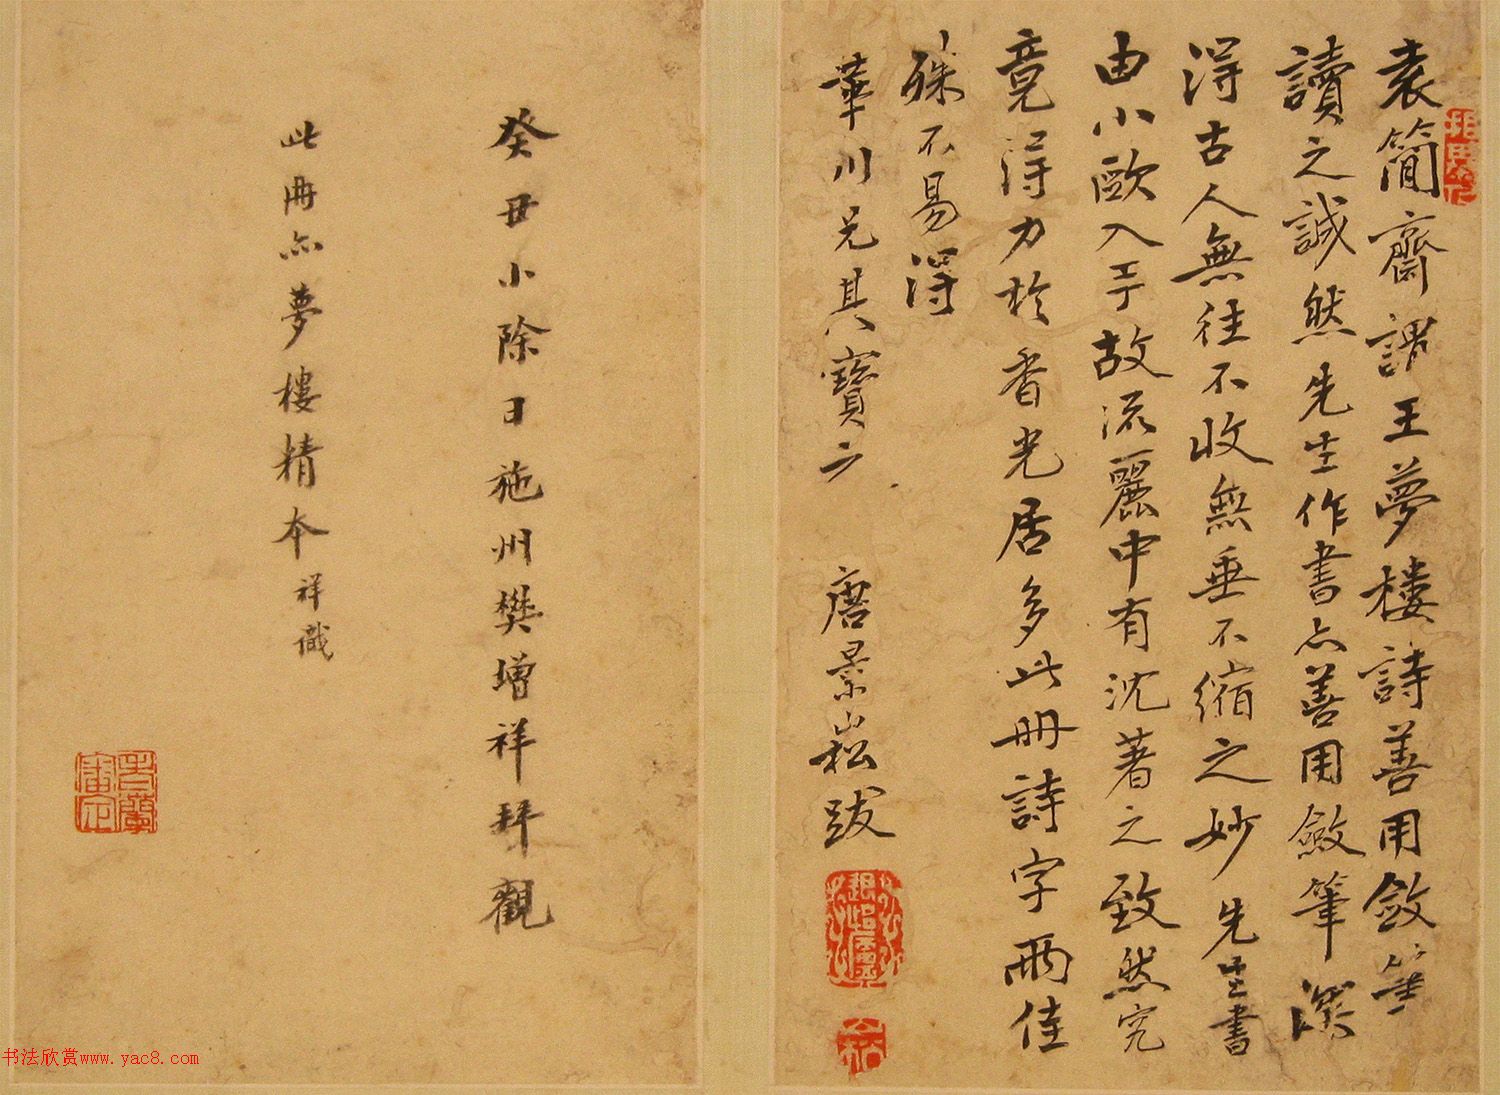 袁簡齋謂王夢樓詩善用斂筆
讀之誠然先生作書亦善用斂筆深
得古人無往不收無垂不縮之妙先生書
由小歐入手故流麗中有沈著之致然究
竟得力於香光居多此册詩字兩佳
殊不易得
華川兄其寶之
唐景崧跋
癸丑小除日施州樊增祥拜觀
此冊亦夢樓精本祥識
书法欣赏www.yac8.com